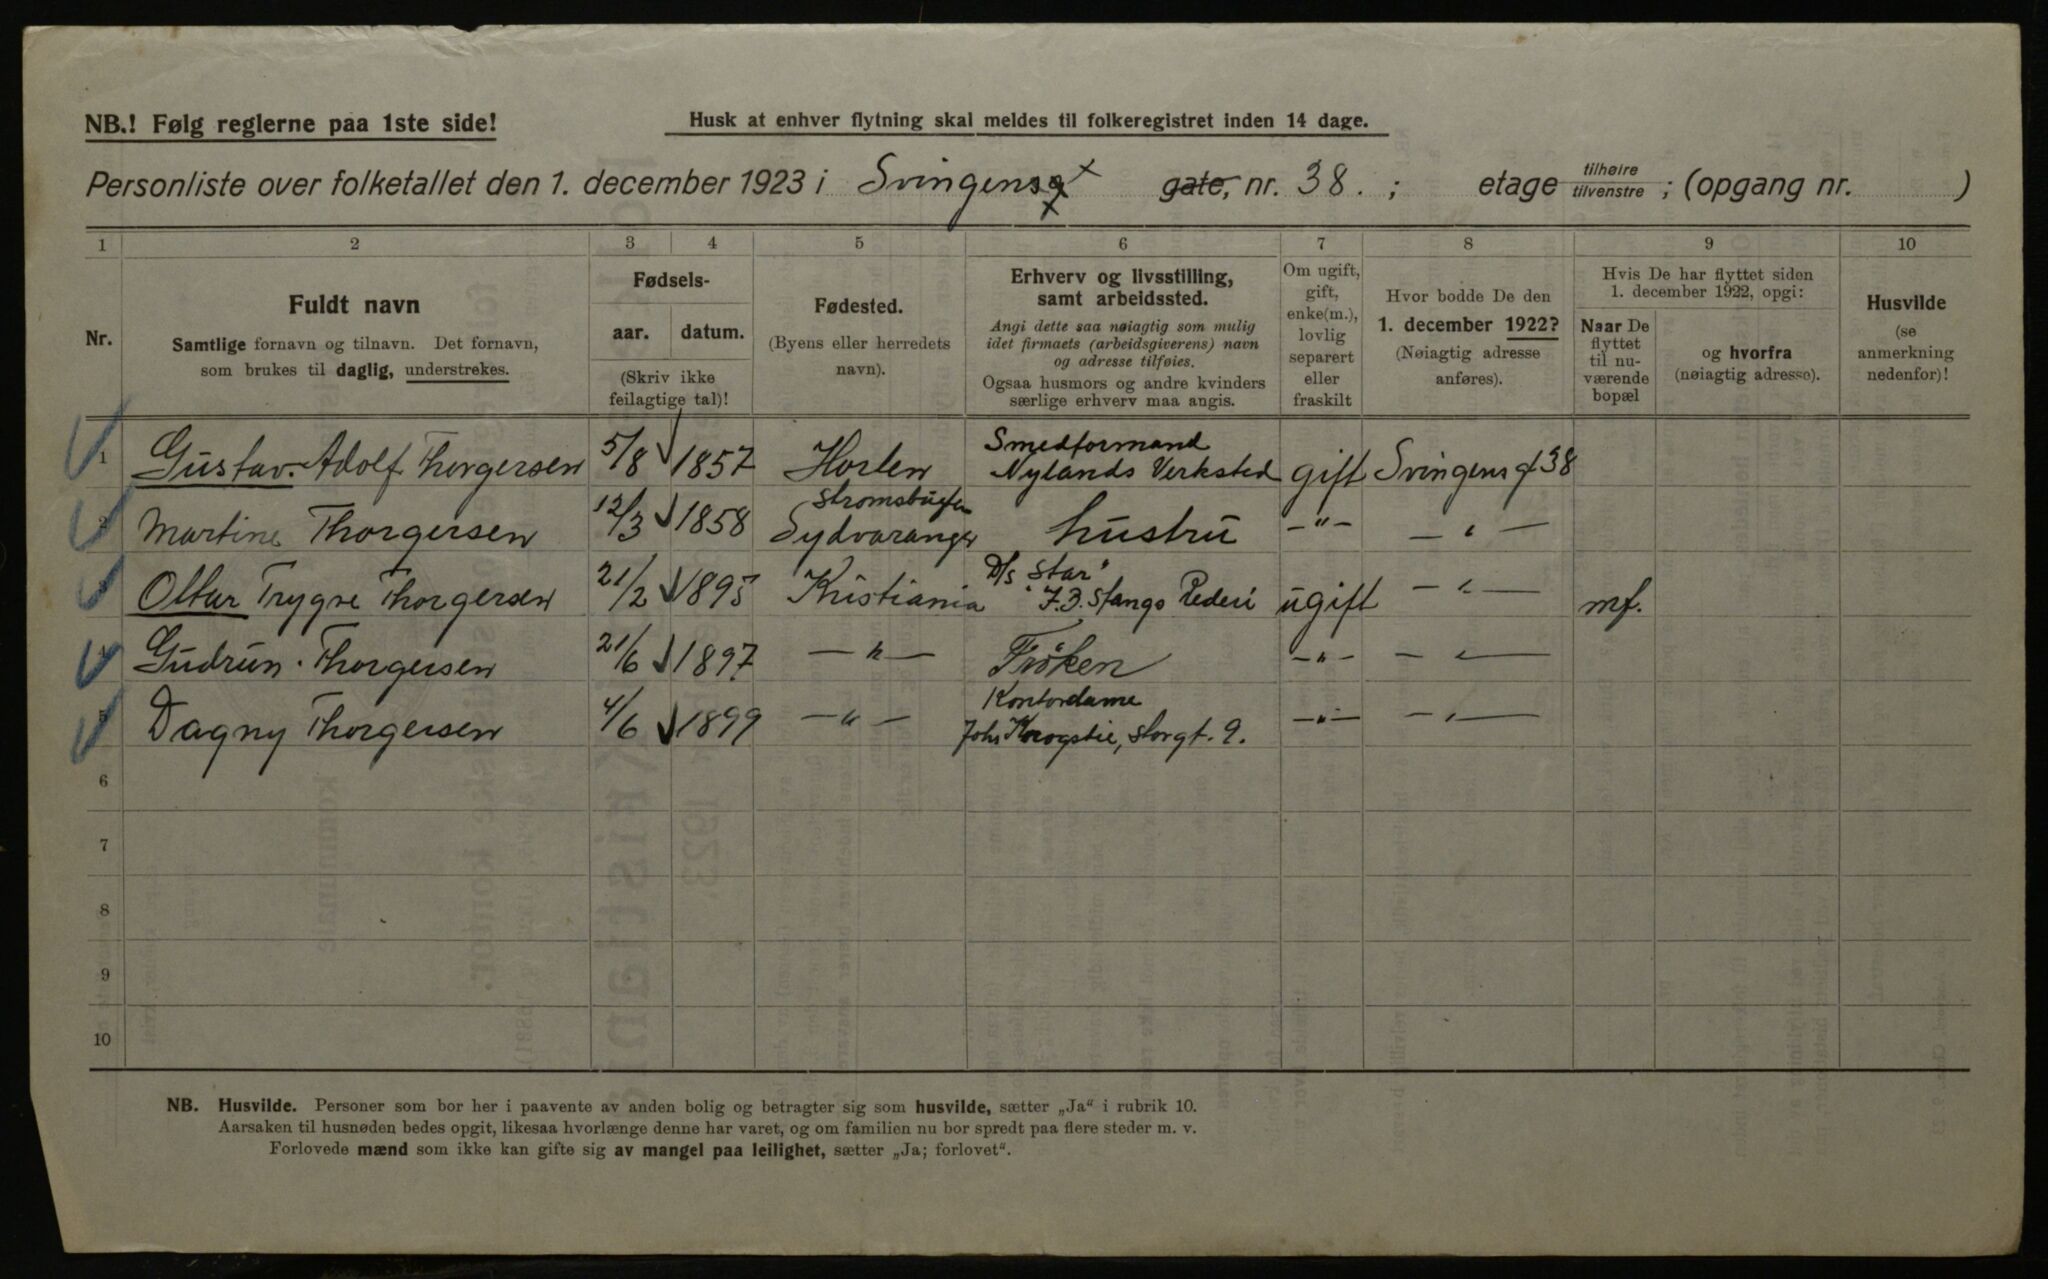 NB.! Følg reglerne paa 1ste side!
Husk at enhver flytning skal meldes til folkeregistret inden 14 dage.
Personliste over folketallet den 1. december 1923 i Svingensg gate, nr. 38. ; etage tilhøire tilvenstre ; (opgang nr. )
1 2 3 4 5 6 7 8 9 10
Nr.
Fuldt navn
Samtlige fornavn og tilnavn. Det fornavn,
som brukes til daglig, understrekes.
Fødsels-
aar. datum.
(Skriv ikke
feilagtige tal)!
Fødested.
(Byens eller herredets
navn).
Erhverv og livsstilling,
samt arbeidssted.
Angi dette saa nøiagtig som mulig
idet firmaets (arbeidsgiverens) navn
og adresse tilføies.
Ogsaa husmors og andre kvinders
særlige erhverv maa angis.
Om ugift,
gift,
enke(m.),
lovlig
separert
eller
fraskilt
Hvor bodde De den
1. december 1922?
(Nøiagtig adresse
anføres).
Hvis De har flyttet siden
1. december 1922, opgi:
Naar De
flyttet
til nu-
værende
bopæl
og hvorfra
(nøiagtig adresse).
Husvilde
(se
anmerkning
nedenfor)!
Smedformand
1 Gustav Adolf Thorgersen 5/8 1857 Horten Nylands Verksted gift Svingensg 38
2 Martine Thorgersen 12/3 1858 Sydvaranger hustru -"- -"-
D/s "Star"
3 Ottar Trygve Thorgersen 21/2 1895 Kristiania J.B. Stangs Rederi ugift -"- mf.
4 Gudrun Thorgersen 21/6 1897 -"- Frøken -"- -"-
Kontordame
5 Dagny Thorgersen 4/6 1899 -"- Johs Krogstie, Storgt. 9. -"- -"-
6
7
8
9
10
NB. Husvilde. Personer som bor her i paavente av anden bolig og betragter sig som husvilde, sætter „Ja“ i rubrik 10.
Aarsaken til husnøden bedes opgit, likesaa hvorlænge denne har varet, og om familien nu bor spredt paa flere steder m. v.
Forlovede mænd som ikke kan gifte sig av mangel paa leilighet, sætter „Ja; forlovet“.